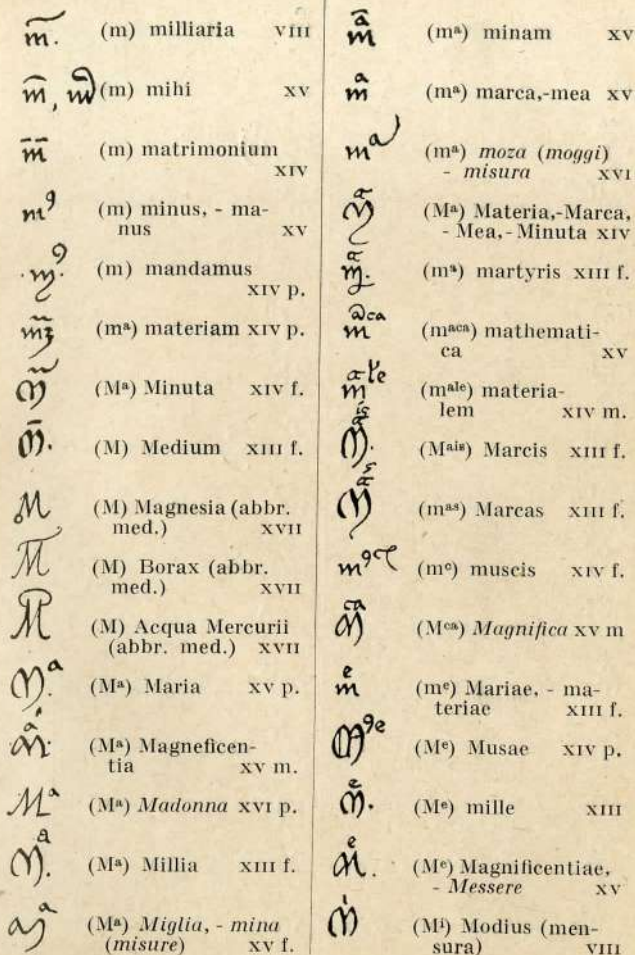 m̃. (m) milliaria VIII
m̄, m̄ (m) mihi XV
m̄̄ (m) matrimonium
XIV
mꝰ (m) minus, - ma-
nus XV
·mꝰ. (m) mandamus
XIV p.
(mᵃ) materiam XIV p.
(Mᵃ) Minuta XIV f.
M̄. (M) Medium XIII f.
M (M) Magnesia (abbr.
med.) XVII
M (M) Borax (abbr.
med.) XVII
M (M) Acqua Mercurii
(abbr. med.) XVII
M.ᵃ (Mᵃ) Maria XV p.
(Mᵃ) Magneficen-
tia XV m.
Mᵃ (Mᵃ) Madonna XVI p.
M.ᵃ (Mᵃ) Millia XIII f.
(Mᵃ) Miglia, - mina
(misure) XV f.
(mᵃ) minam XV
mᵃ (mᵃ) marca,-mea XV
mᵃ (mᵃ) moza (moggi)
- misura XVI
Mᵃ (Mᵃ) Materia,-Marca,
- Mea,- Minuta XIV
mᵃ. (mᵃ) martyris XIII f.
mᵃᶜᵃ (mᵃᶜᵃ) mathemati-
ca XV
mᵃˡᵉ (mᵃˡᵉ) materia-
lem XIV m.
Mᵃⁱˢ. (Mᵃⁱˢ) Marcis XIII f.
Mᵃˢ (mᵃˢ) Marcas XIII f.
(mᶜ) muscis XIV f.
Mᶜᵃ (Mᶜᵃ) Magnifica XV m
mᵉ (mᵉ) Mariae, - ma-
teriae XIII f.
Mꝰᵉ (Mᵉ) Musae XIV p.
Mᵉ. (Mᵉ) mille XIII
Mᵉ. (Mᵉ) Magnificentiae,
- Messere XV
Mⁱ (Mⁱ) Modius (men-
sura) VIII